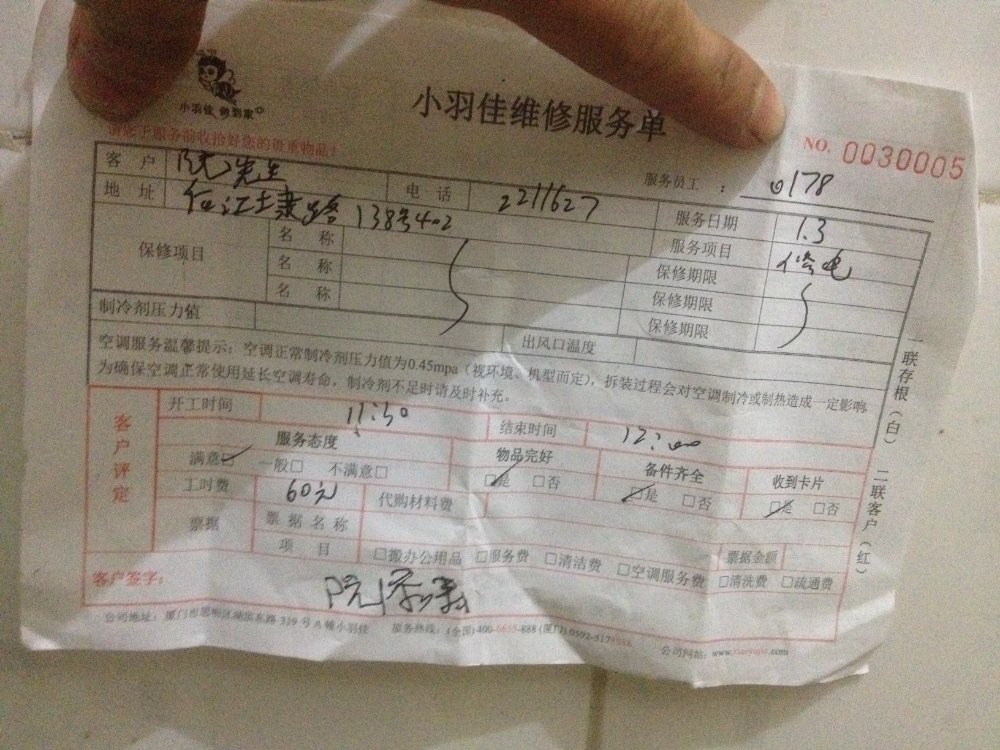 小羽佳 做到家
小羽佳维修服务单
NO. 0030005
请您于服务前收拾好您的贵重物品!
服务员工: 0178
客户 阮先生 电话 2211627 服务日期 1.3
地址 138号402 服务项目
保修项目 名称 保修期限
名称 保修期限
名称 保修期限
制冷剂压力值 出风口温度
空调服务温馨提示:空调正常制冷剂压力值为0.45mpa(视环境、机型而定),拆装过程会对空调制冷或制热造成一定影响,
为确保空调正常使用延长空调寿命,制冷剂不足时请及时补充。
客户评定
开工时间 11:30 结束时间 12:00
服务态度 物品完好 备件齐全 收到卡片
满意□ 一般□ 不满意□ □是 □否 □是 □否 □是 □否
工时费 60元 代购材料费
票据 票据名称 票据金额
项目 □搬办公用品 □服务费 □清洁费 □空调服务费 □清洗费 □疏通费
客户签字:
公司地址:厦门市思明区湖滨东路319号A幢小羽佳 服务热线:(全国)400-6655-888(厦门)0592-517
公司网站:www.xiaoyujia.com
一联存根(白) 二联客户(红)